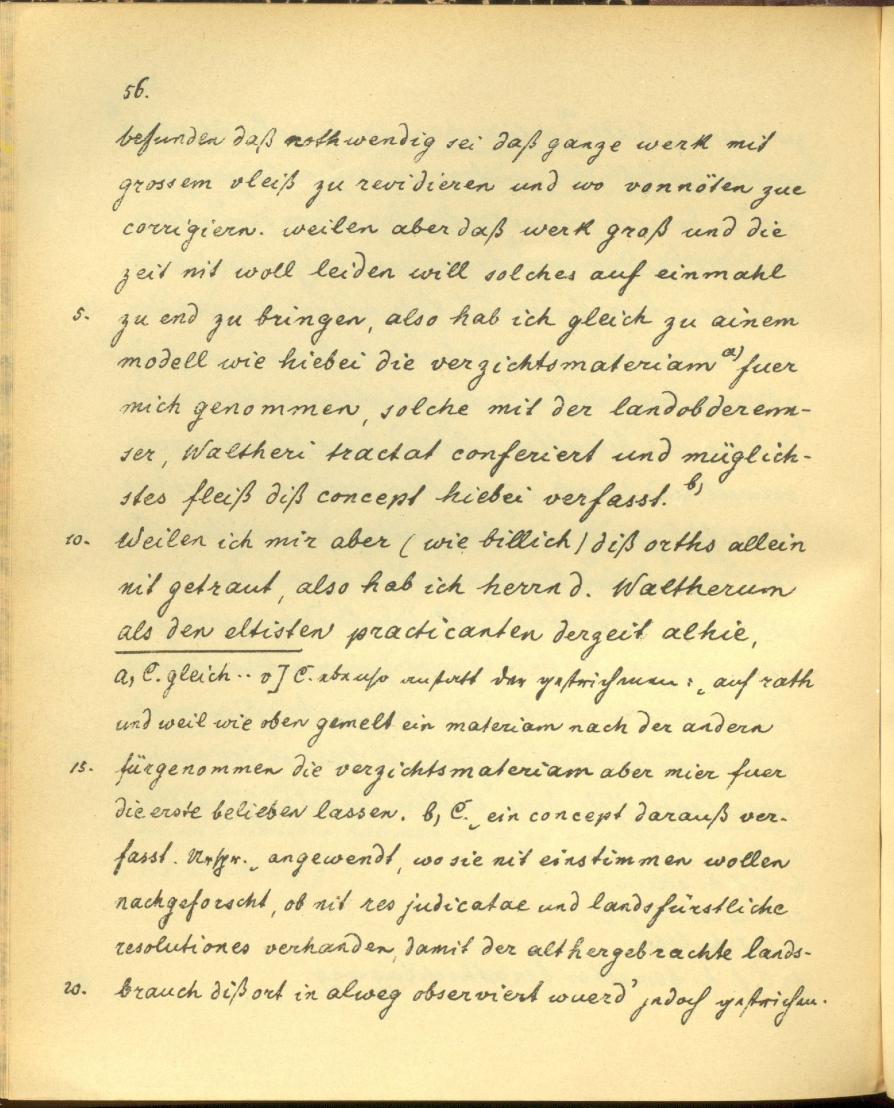 56.
befunden daß nothwendig sei daß ganze werk mit
grossem vleiß zu revidieren und wo vonnöten zue
corrigiern. weilen aber daß werk groß und die
zeit nit woll leiden will solches auf einmahl
5. zu end zu bringen, also hab ich gleich zu ainem
modell wie hiebei die verzichtsmateriam a) fuer
mich genommen, solche mit der landobderenn-
ser, Waltheri tractat conferiert und müglich-
stes fleiß diß concept hiebei verfasst. b)
10. Weilen ich mir aber (wie billich) diß orths allein
nit getraut, also hab ich herrn d. Waltherum
als den eltisten practicanten dergeit alhie,
a, C. gleich .. v] C. ebenso anstatt der gestrichenen: „auf rath
und weil wie oben gemelt ein materiam nach der andern
15. fürgenommen die verzichtsmateriam aber mier fuer
die erste belieben lassen. b, C. „ein concept darauß ver-
fasst. Urspr. „angewendt, wo sie nit einstimmen wollen
nachgeforscht, ob nit res judicatae und landsfürstliche
resolutiones verhanden, damit der althergebrachte lands-
20. brauch dißort in alweg observiert wuerd' jedoch gestrichen.